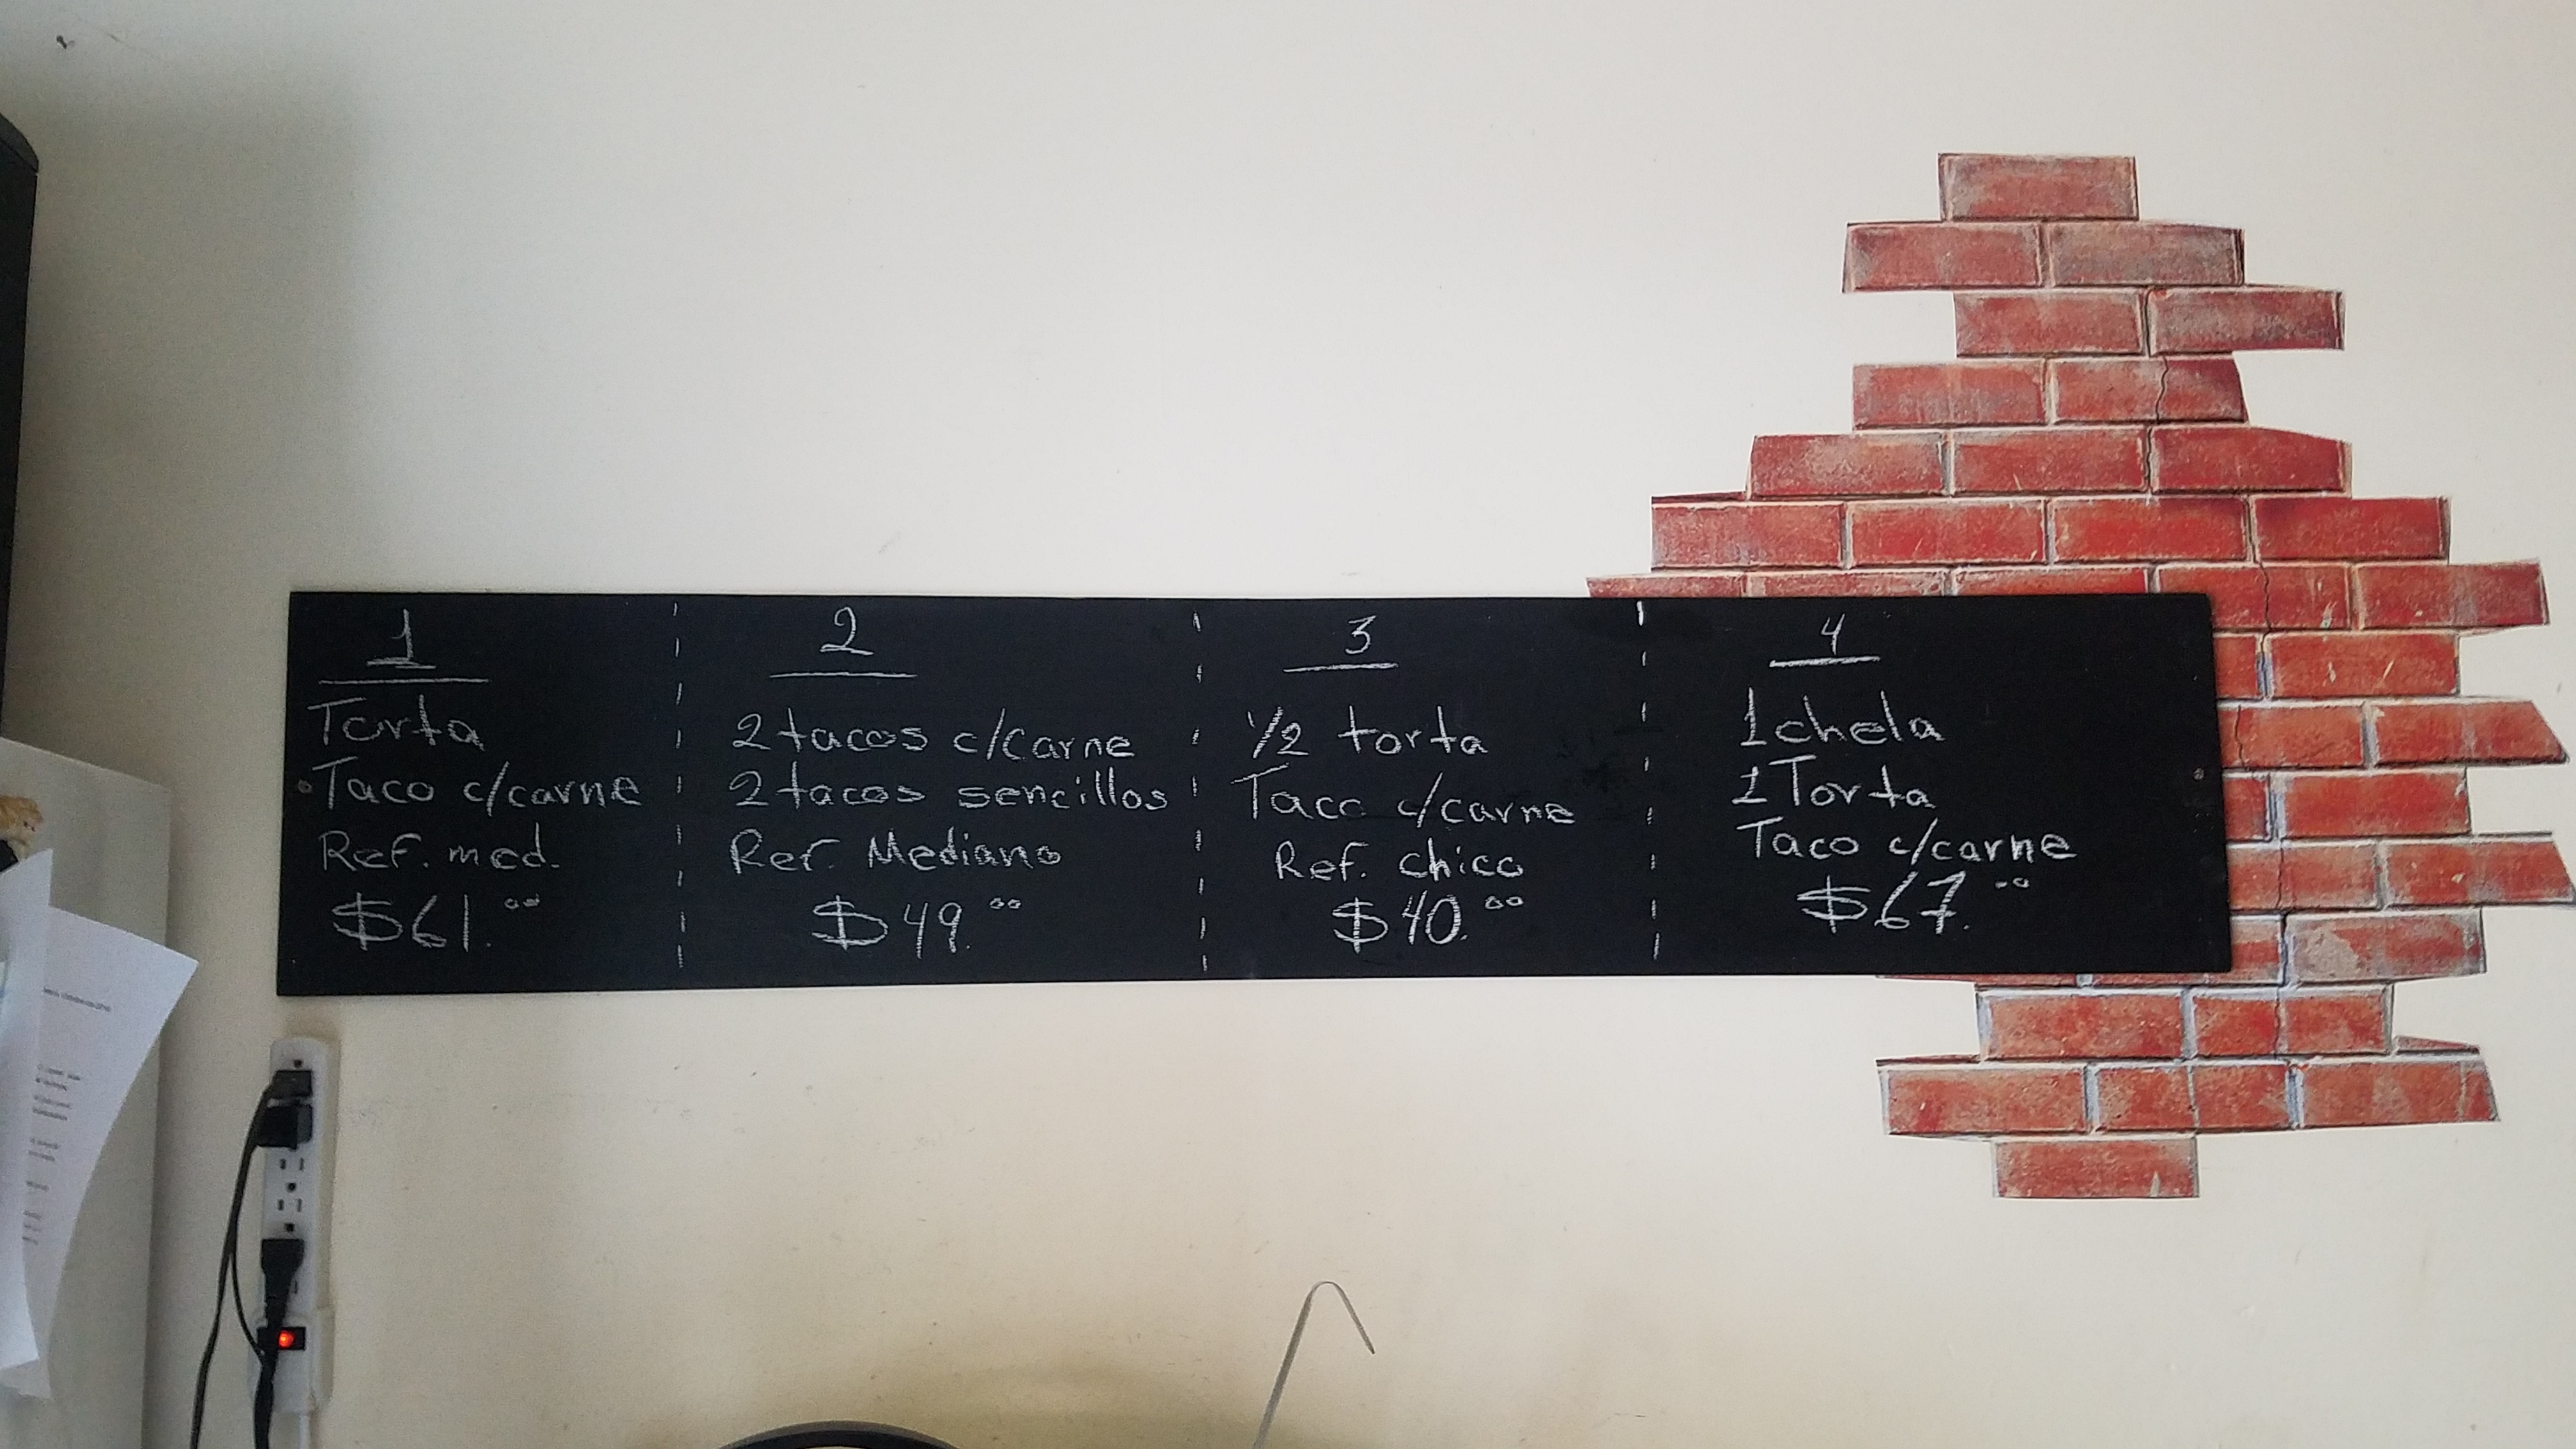 1
Torta
Taco c/carne
Ref. med.
$61.00
2
2 tacos c/carne
2 tacos sencillos
Ref. Mediano
$49.00
3
1/2 torta
Taco c/carne
Ref. chico
$40.00
4
1 chela
1 Torta
Taco c/carne
$67.00